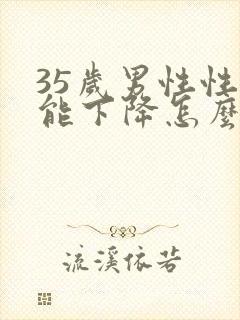 35歲男性性
能下降怎麼
流溪依若